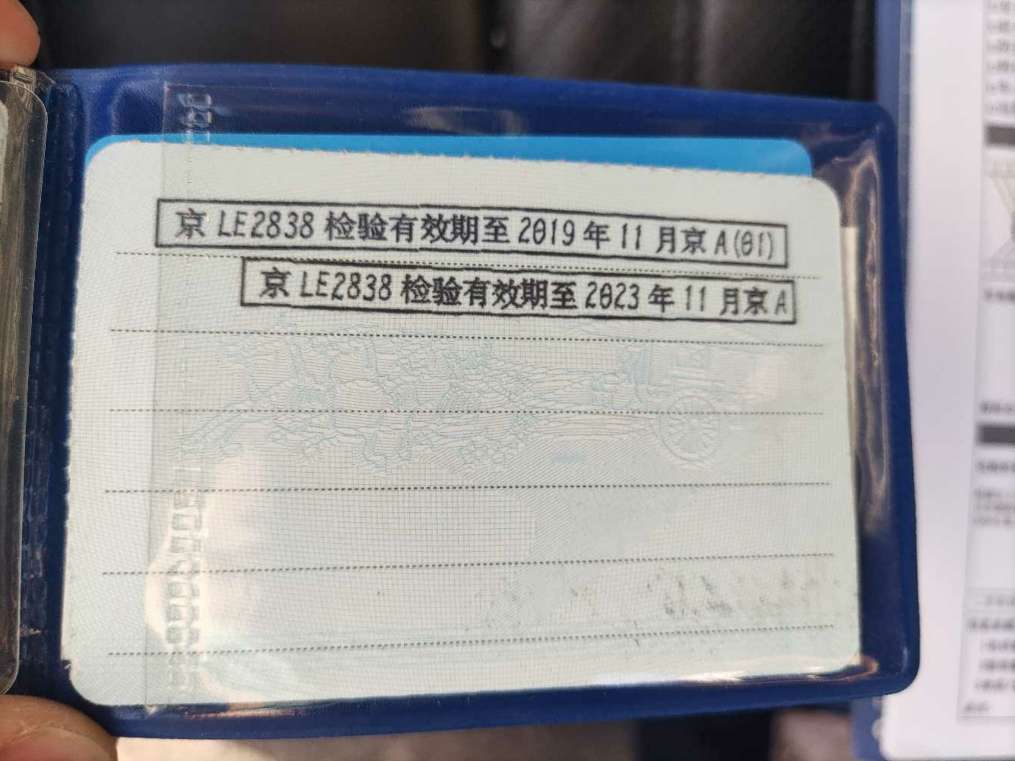 京 LE2838 检验有效期至 2019 年 11 月京 A(01)
京 LE2838 检验有效期至 2023 年 11 月京 A